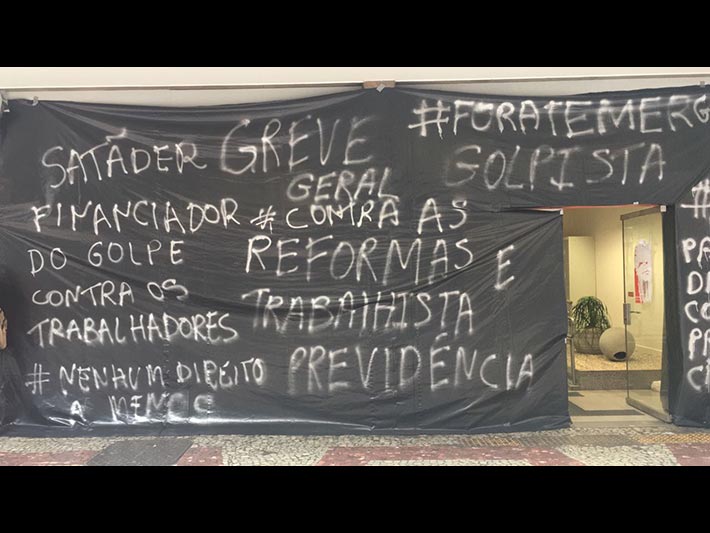 SATÃDER
FINANCIADOR
DO GOLPE
CONTRA OS
TRABALHADORES
# NENHUM DIREITO
A MENOS
GREVE
GERAL
# CONTRA AS
REFORMAS E
TRABALHISTA
PREVIDÊNCIA
#FORATEMERG
GOLPISTA
#
PA
DI
CO
PR